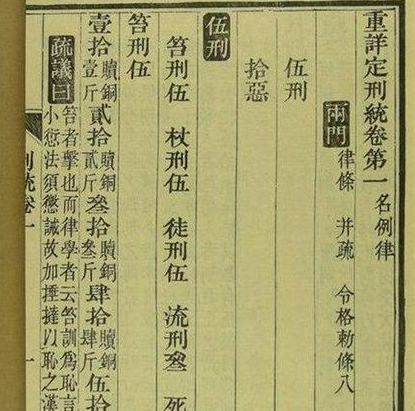 重詳定刑統卷第一名例律
兩門律條并疏令格勅條八
伍刑
拾惡
伍刑
笞刑伍杖刑伍徒刑伍流刑叄死
笞刑伍
壹拾贖銅壹斤貳拾贖銅貳斤叄拾贖銅叄斤肆拾贖銅肆斤伍拾
疏議曰笞者擊也而律學者云笞訓爲恥言
小愆法須懲誡故加捶撻以恥之漢
刑統卷一
一